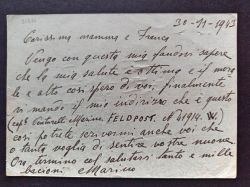 30-11-1943
Carissima mamma e Franco
Vengo con questa mia farvi sapere
che la mia salute è ottima e il morale
è alto così spero di voi, finalmente
vi mando il mio indirizzo che è questo
(cap. Marino FELDPOST. Nº
così potete scrivermi anche voi che
o tanta voglia di sentire vostre nuove
Ora, termino col salutarvi tanto e mille
bacioni Marino